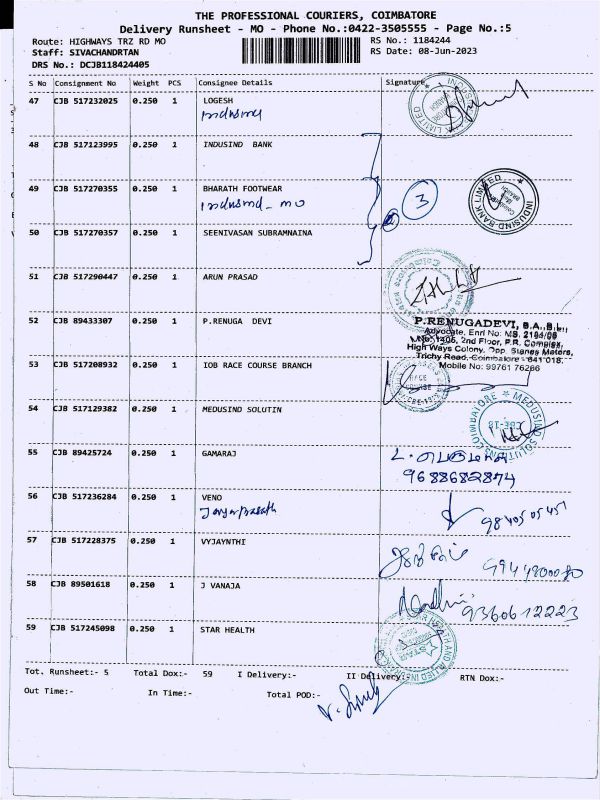 THE PROFESSIONAL COURIERS, COIMBATORE
Delivery Runsheet - MO - Phone No.:0422-3505555 - Page No.:5
Route: HIGHWAYS TRZ RD MO
RS No.: 1184244
Staff: SIVACHANDRTAN
RS Date: 08-Jun-2023
DRS No.: DCJB118424405
S No Consignment No Weight PCS Consignee Details Signature
47 CJB 517232025 0.250 1 LOGESH
Indusind
48 CJB 517123995 0.250 1 INDUSIND BANK
49 CJB 517270355 0.250 1 BHARATH FOOTWEAR
Indusind - MO
3
INDUSIND BANK LIMITED
50 CJB 517270357 0.250 1 SEENIVASAN SUBRAMNAINA
51 CJB 517290447 0.250 1 ARUN PRASAD
52 CJB 89433307 0.250 1 P.RENUGA DEVI
P.RENUGADEVI, B.A.,B.L.,
Advocate, Enrl No: MS. 2194/06
No. 1406, 2nd Floor, P.R. Complex,
High Ways Colony, Opp. Stanes Motors,
Trichy Road, Coimbatore - 641 018.
Mobile No: 99761 76266
53 CJB 517208932 0.250 1 IOB RACE COURSE BRANCH
54 CJB 517129382 0.250 1 MEDUSIND SOLUTIN
MEDUSIND SOLUTIONS COIMBATORE
CBE-18
55 CJB 89425724 0.250 1 GAMARAJ
9688682874
56 CJB 517236284 0.250 1 VENO
98405 05451
57 CJB 517228375 0.250 1 VYJAYNTHI
9944900080
58 CJB 89501618 0.250 1 J VANAJA
9360612223
59 CJB 517245098 0.250 1 STAR HEALTH
Tot. Runsheet:- 5 Total Dox:- 59 I Delivery:- II Delivery:- RTN Dox:-
Out Time:- In Time:- Total POD:-